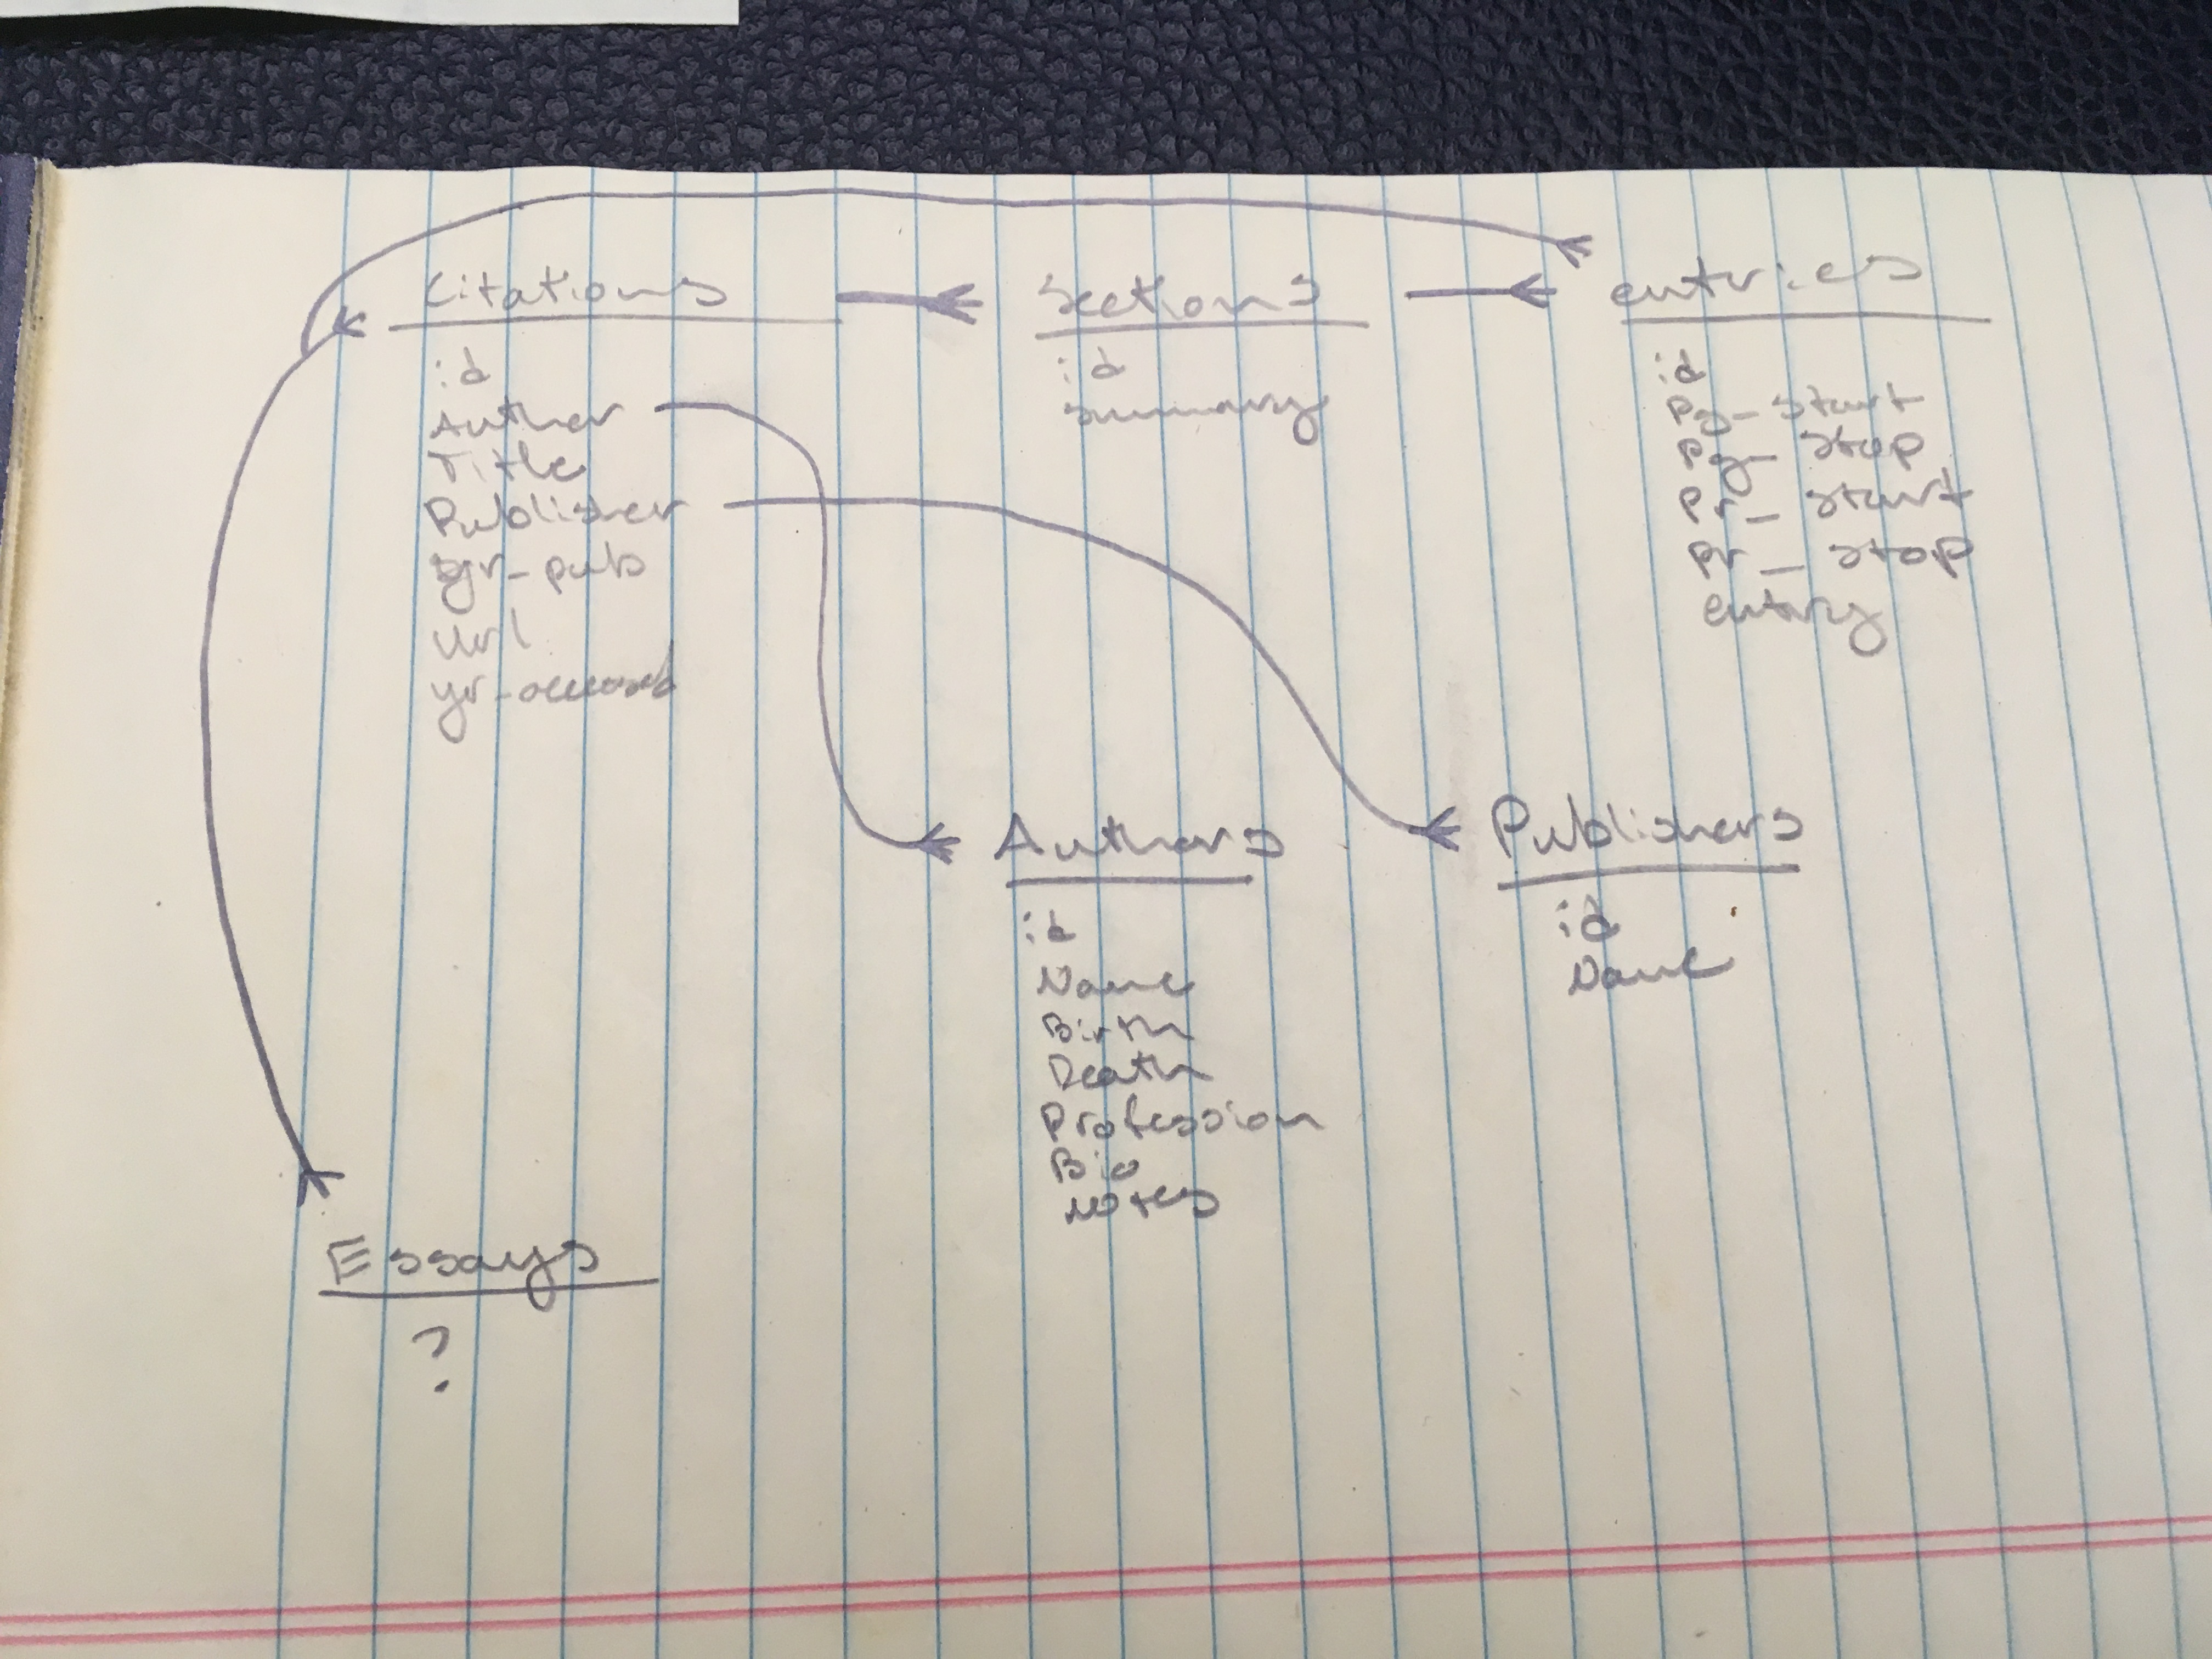 Citations
id
Author
Title
Publisher
yr-pub
url
yr-accessed
Sections
id
summary
entries
id
pg-start
pg-end
entry
Authors
id
Name
Birth
Death
Profession
Bio
Notes
Publishers
id
Name
Essays
?